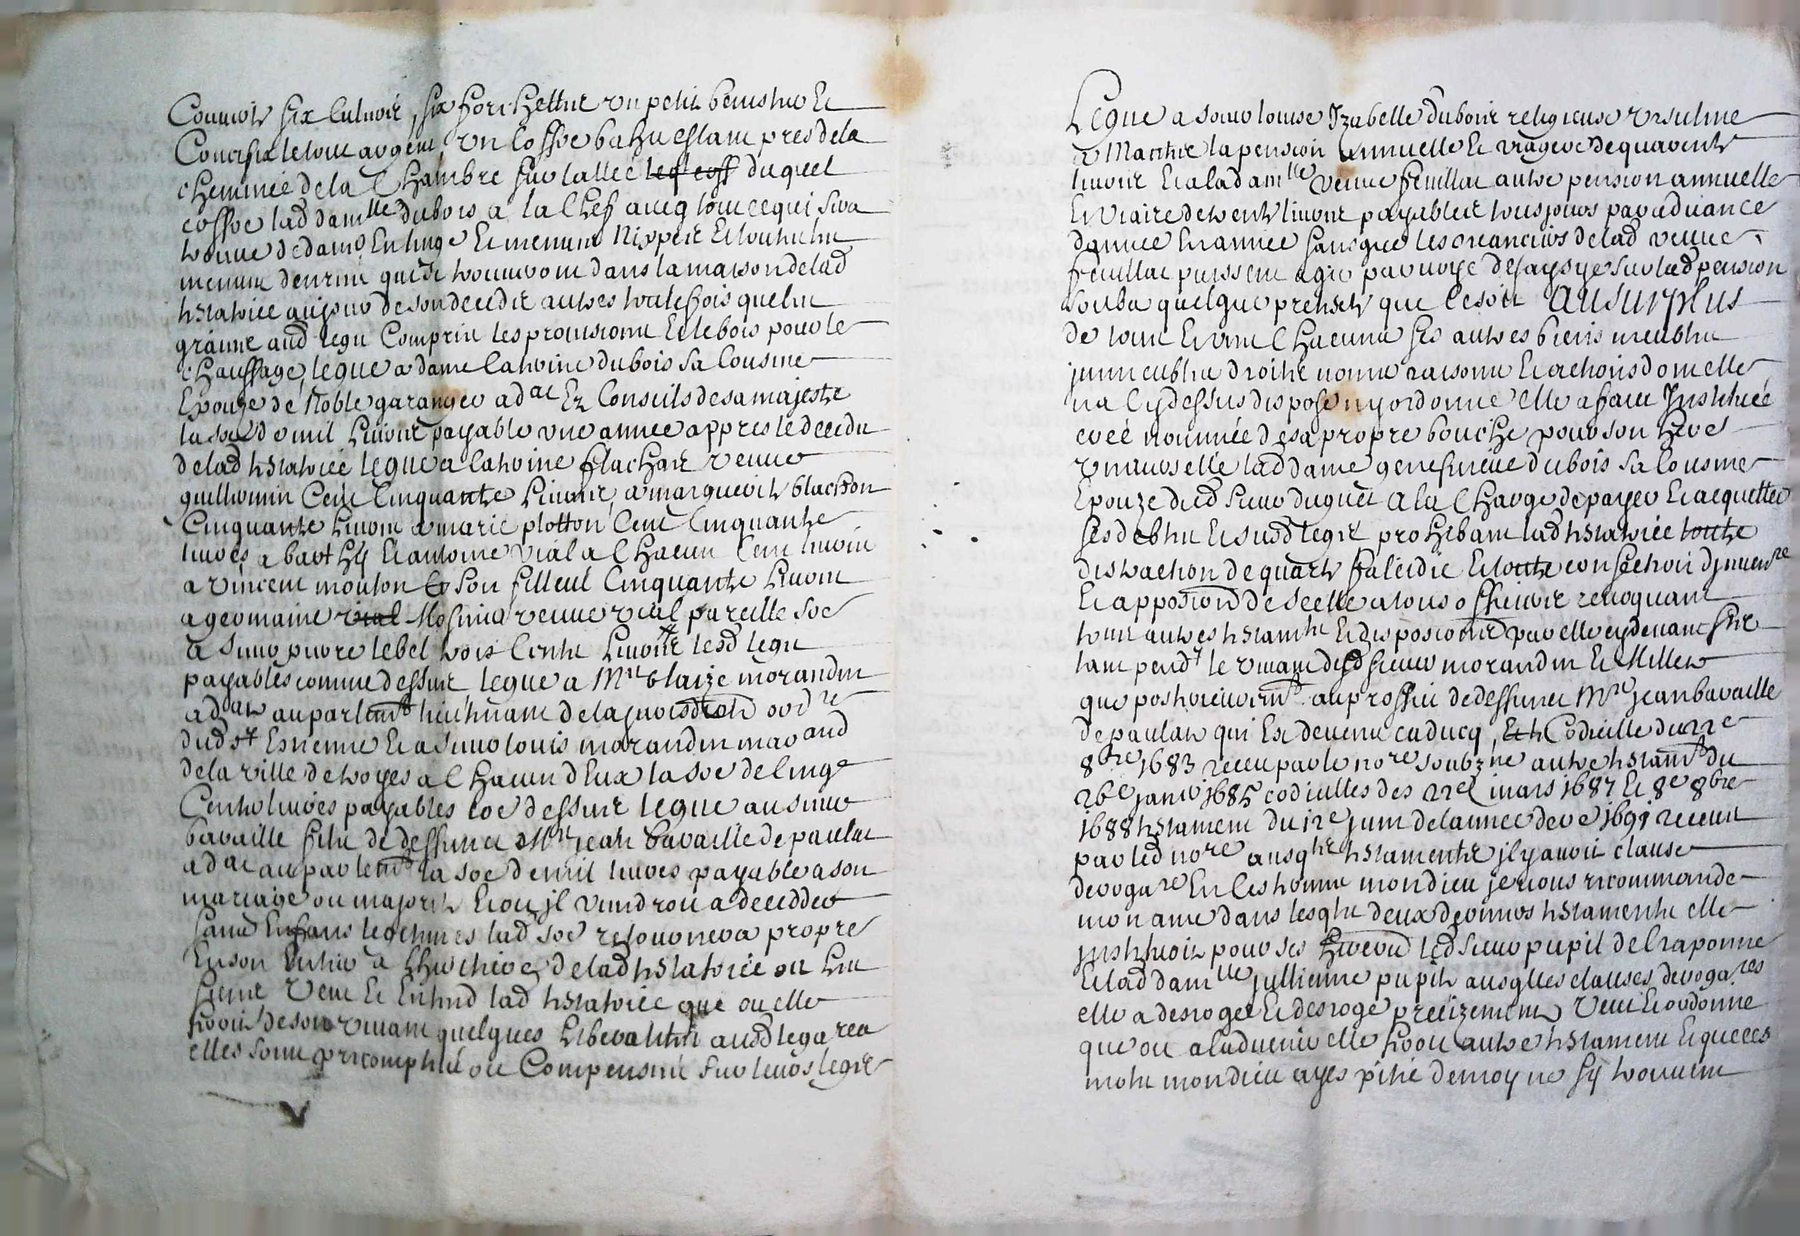 Couverts six Culiniè, six forchettes un petit benistie Et
Concession le tout argent, Un Coffre bahu estant pres de la
cheminée de la Chambre sur lallée les coff duquel
coffre lad damlle dubois a la Chef avecq tout ce qui sera
trouve dedans En linge Et menues Nippes Et tout
menues denrées qui se trouveront dans la maison de lad
testatrice au jour de son decedz autres toutefois que les
grains aud legu Compris les provisions Et le bois pour le
chauffage, legue a dame Catherine dubois sa Cousine
Epouze de Noble garanger adat Ez Conseils de sa majeste
la soe de mil Livres payable une annee appres le deceds
de lad testatrice legue a Catherine flachat veuve
guilliomin Cent Cinquante Livres, a marguerite blachon
Cinquante Livres a marie plotton Cent Cinquante
livres, a barthy Et antoine vial a Chacun Cent livres
a Vincent mouton son filleul Cinquante Livres
a germaine vial veuve vial pareille soe
a sieur pierre lebel trois Cents Livres lesd legu
payables comme dessus legue a Mre blaize morandin
adat au parlemt lieutenant de la ordre
dud st Estienne Et a sieur louis morandin marand
de la ville de troyes a Chacun d'Eux la soe de Cinq
Cents livres payables coe dessus legue au sieur
bavaille fils de deffunct Mre jean bavaille de paulat
adat au parlemt la soe de mil livres payable a son
mariage ou majorité Et ou jl viendroit a decedder
sans Enfans legitimes lad soe retournera propre
Et son Entier a de lad testatrice ou les
siens Veut Et Entend lad testatrice que ou elle
feroit de son vivant quelques Liberalités aud legarea
elles soient precomptées ou Compensées sur leurs legs
Legue a soeur louise Jzabelle dubois religieuse Ursuline
a la pension annuelle Et viagere de quarente
livres Et a lad damlle veuve feuillat autre pension annuelle
Et viaire de trente livres payables tousjours par advance
dannée En année sans que les creanciers de lad veuve
feuillat puissent agir par voye de saysye sur lad pension
soubz quelque pretexte que ce soit Au surplus
de tous Et uns Chacuns ses autres biens meubles
jmmeubles droits noms raisons Et actions dont elle
na Cy dessus disposé ny ordonné elle a fait Jnstitué
creé nommée de sa propre bouche pour son heres
universelle lad dame genefvieve dubois sa Cousine
Epouze dud sieur duguet a la Charge de payer Et acquetter
ses debtes Et susd legs prohibant lad testatrice toute
distraction de quarte falcidie Et toute confection djnvenre
Et apposion de scelle a tous officiers revoquant
tous autres testamts Et disposicions par elle cy devant fits
tant pendt le vivant dud sieur morandin Et Millet
que posterieuremt au proffict de deffunct Mre jean bavaille
de paulat qui Est devenu caducq, Et Codicille du 22e
8bre 1683 receu par le nore soubzne autre testamt du
26e janv 1685 codicilles des 22e mars 1687 Et 8e 8bre
1688 testament du 12e juin de lannee derre 1691 receus
par led nore ausqls testaments jl y avoit clause
derogare En ces termes mon dieu je vous recommande
mon ame dans lesqls deux derniers testaments elle
jnstituoit pour ses heres led sieur pupil de Craponne
Et lad damlle jullienne pupil ausqlles clauses derogares
elle a desrogée Et desroge precizement Veut Et ordonne
que ou a ladvenir elle feroit autre testament Et que ces
mots mon dieu ayes pitié de moy ne sy trouvent